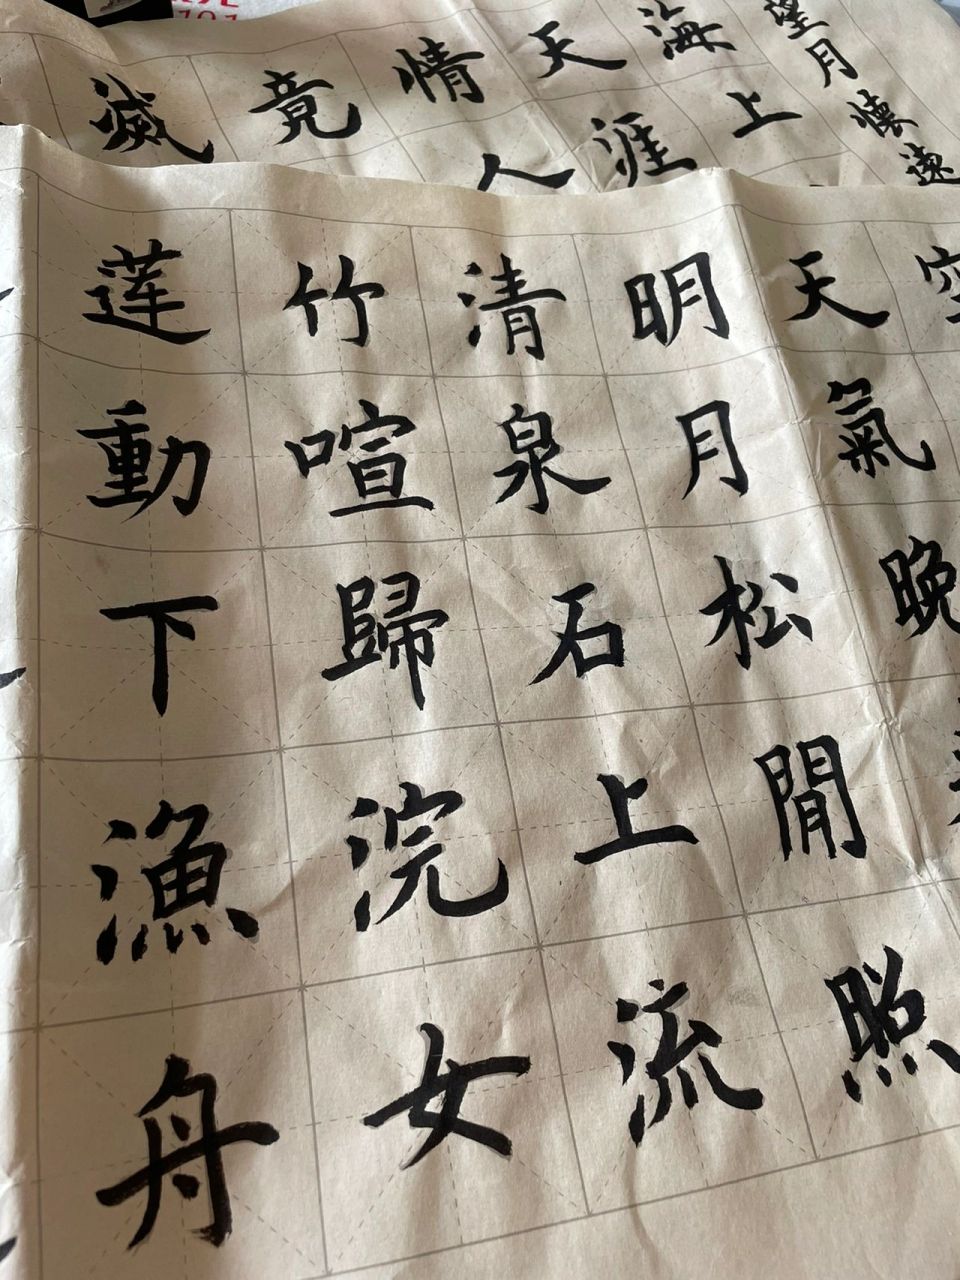 望月懷遠
海上
天涯
情人
竟
滅
空
天氣晚
明月松閒照
清泉石上流
竹喧歸浣女
莲動下漁舟